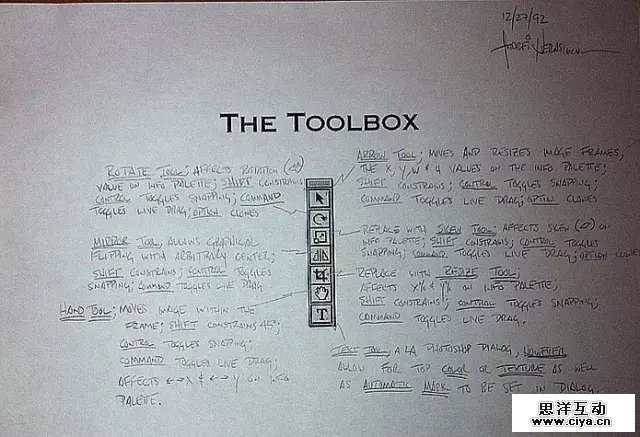 12/27/92
THE TOOLBOX
ROTATE TOOL; AFFECTS ROTATION
VALUE ON INFO PALETTE; SHIFT CONSTRAINS;
CONTROL TOGGLES SNAPPING; COMMAND
TOGGLES LIVE DRAG; OPTION CLONES
MIRROR TOOL, ALLOWS GRAPHICAL
FLIPPING WITH ARBITRARY CENTER;
SHIFT CONSTRAINS; CONTROL TOGGLES
SNAPPING; COMMAND TOGGLES LIVE DRAG
HAND TOOL; MOVES IMAGE WITHIN THE
FRAME; SHIFT CONSTRAINS 45°;
CONTROL TOGGLES SNAPPING;
COMMAND TOGGLES LIVE DRAG;
AFFECTS ↔X & ↔Y ON INFO
PALETTE.
T
ARROW TOOL; MOVES AND RESIZES IMAGE FRAMES,
THE X, Y, W & H VALUES ON THE INFO PALETTE;
SHIFT CONSTRAINS; CONTROL TOGGLES SNAPPING;
COMMAND TOGGLES LIVE DRAG; OPTION CLONES
REPLACE WITH SKEW TOOL; AFFECTS SKEW ON
INFO PALETTE; SHIFT CONSTRAINS; CONTROL TOGGLES
SNAPPING; COMMAND TOGGLES LIVE DRAG; OPTION CLONES
REPLACE WITH RESIZE TOOL;
AFFECTS X% & Y% ON INFO PALETTE;
SHIFT CONSTRAINS; CONTROL TOGGLES SNAPPING;
COMMAND TOGGLES LIVE DRAG.
TEXT TOOL, A LA PHOTOSHOP DIALOG, HOWEVER
ALLOW FOR TOP COLOR OR TEXTURE AS WELL
AS AUTOMATIC MASK TO BE SET IN DIALOG.
思洋互动
www.ciya.cn